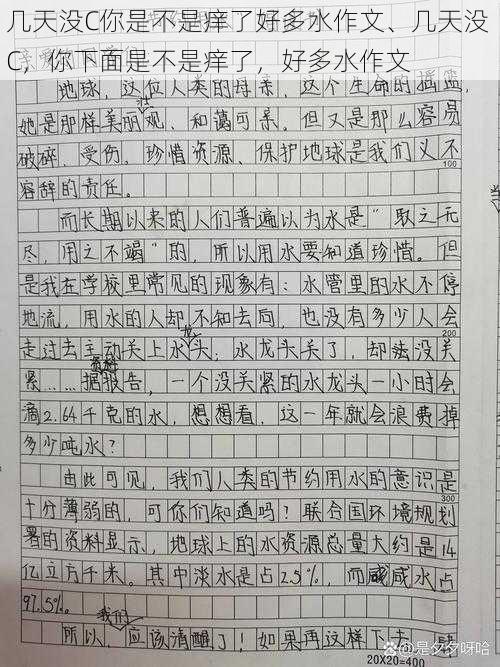 几天没C你是不是痒了好多水作文、几天没
C，你下面是不是痒了，好多水作文
地球，这位人类的母亲，这个生命的摇篮，
她是那样美丽壮观、和蔼可亲。但又是那么容易
破碎、受伤，珍惜资源、保护地球是我们义不
容辞的责任。
而长期以来的人们普遍以为水是“取之无
尽，用之不竭”的，所以用水要知道珍惜。但
是我在学校里常见的现象有：水管里的水不停
地流，用水的人却不知去向，也没有多少人会
走过去主动关上水龙头，水龙头关了，却没关
紧……据资料报告，一个没关紧的水龙头一小时会
滴2.64千克的水，想想看，这一年就会浪费掉
多少吨水？
由此可见，我们人类的节约用水的意识是
十分薄弱的，可你们知道吗？联合国环境规划
署的资料显示，地球上的水资源总量大约是14
亿立方千米。其中淡水是占2.5%，而咸水占
97.5%。
所以，我们应该清醒了！如果再这样下去，
100
200
300
20X20=400
@是夕夕呀哈